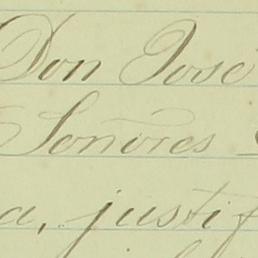 Don José
Señores
a, justif